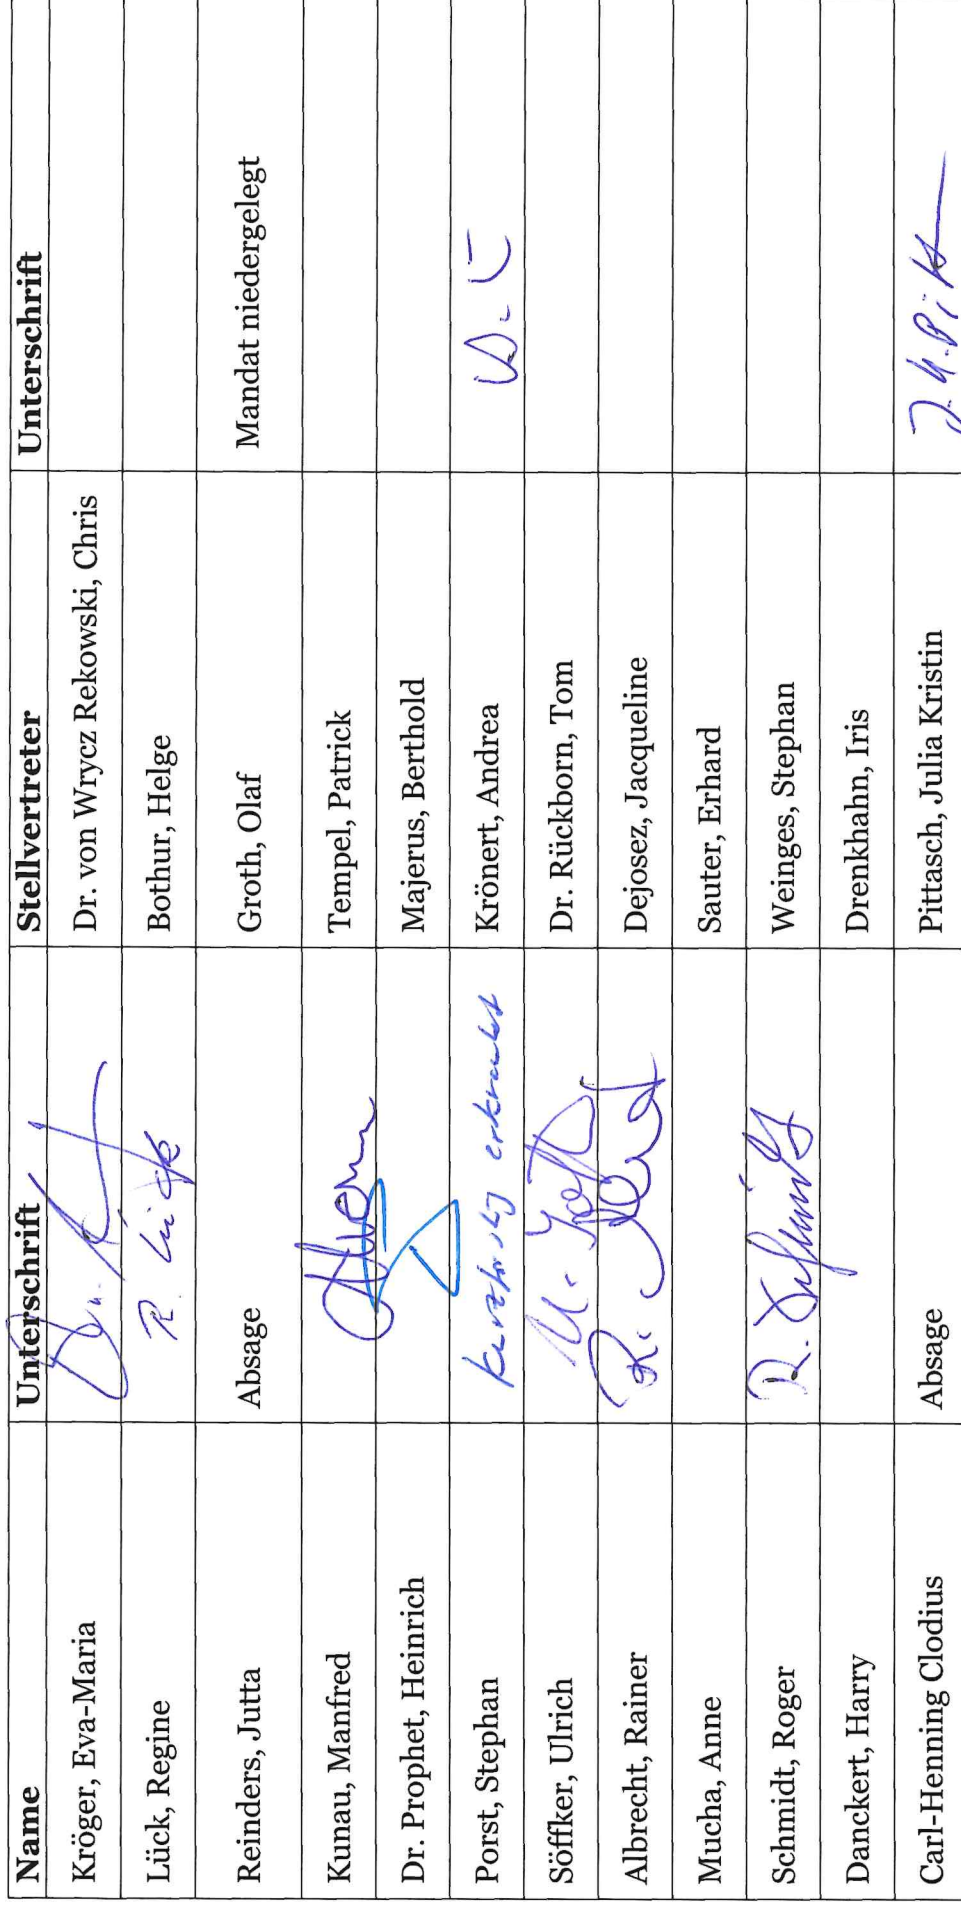 Name Unterschrift Stellvertreter Unterschrift
Kröger, Eva-Maria Dr. von Wrycz Rekowski, Chris
Lück, Regine R. Lück Bothur, Helge
Reinders, Jutta Absage Groth, Olaf Mandat niedergelegt
Kunau, Manfred Tempel, Patrick
Dr. Prophet, Heinrich Majerus, Berthold
Porst, Stephan kurzfristig erkrankt Krönert, Andrea
Söffker, Ulrich Dr. Rückborn, Tom
Albrecht, Rainer Dejosez, Jacqueline
Mucha, Anne Sauter, Erhard
Schmidt, Roger R. Schmidt Weinges, Stephan
Danckert, Harry Drenkhahn, Iris
Carl-Henning Clodius Absage Pittasch, Julia Kristin